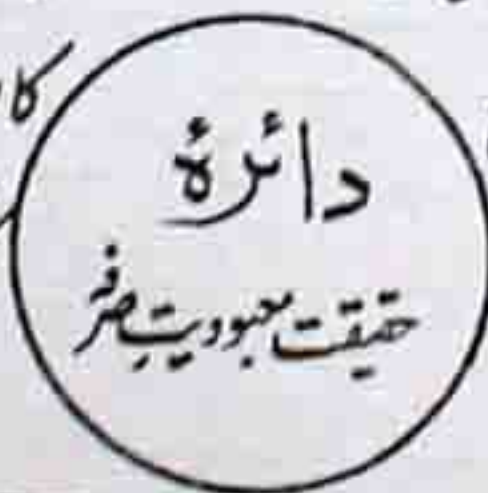 دائرۂ
حقیقت معبودیتِ صرفہ